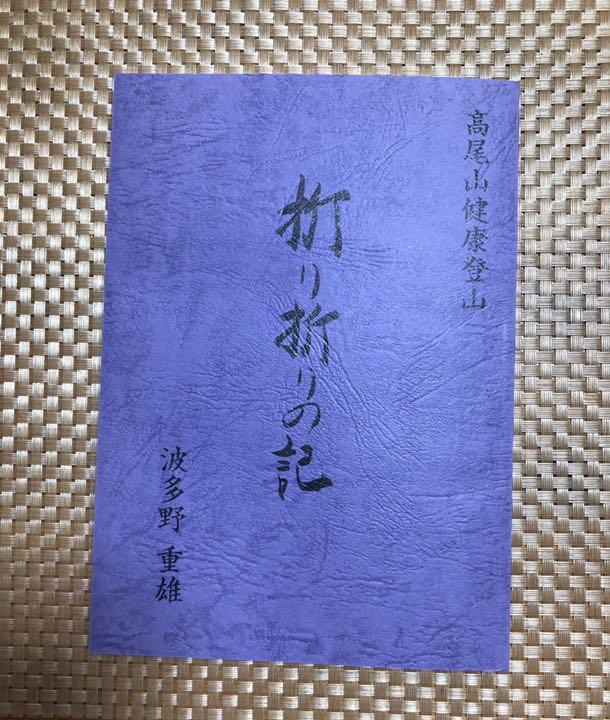 高尾山健康登山
折り折りの記
波多野 重雄